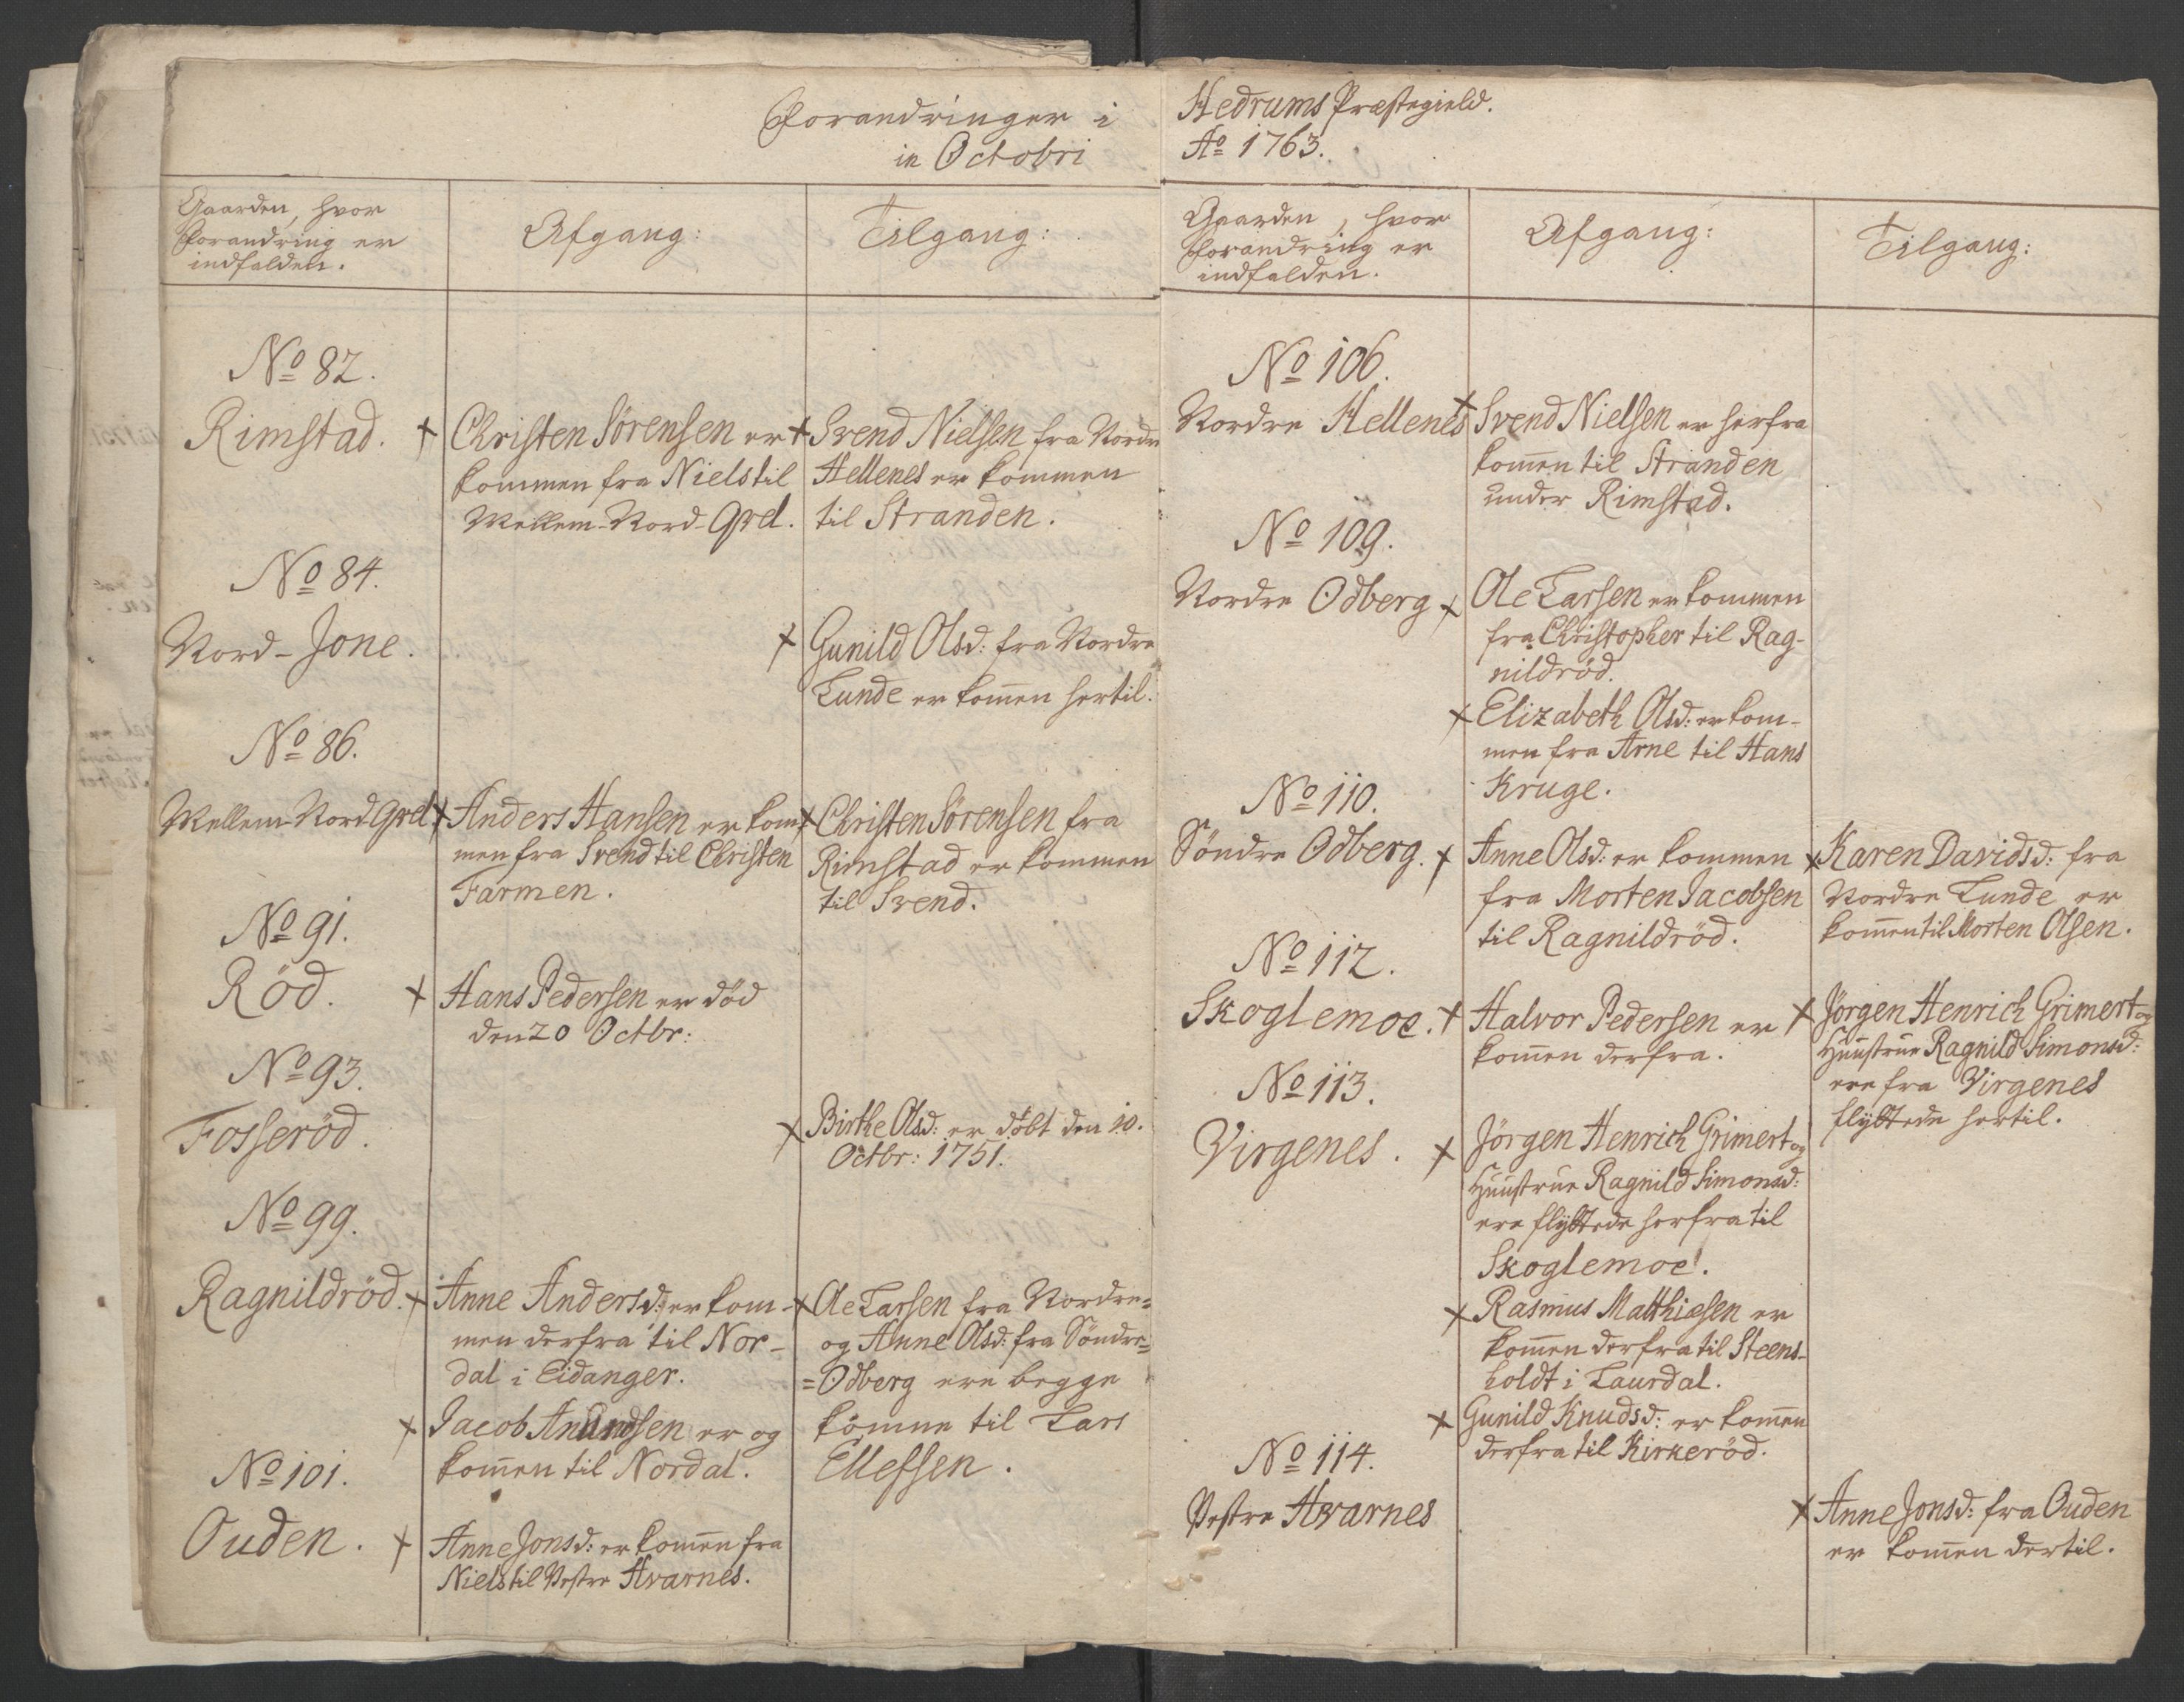 Forandringer i
in Octobri
Gaarden, hvor
forandring er
indfalden.
Afgang:
Tilgang:
No 82.
Rimstad.
+ Christen Sörensen er
kommen fra Niels til
Mellem-Nord-Qvel.
+ Svend Nielsen fra Nordre
Hellenes er kommen
til Stranden.
No 84.
Nord-Jone.
+ Gunild Olsd: fra Nordre
Lunde er kom̄en hertil.
No 86.
Mellem-Nord Qvel.
+ Anders Hansen er kom-
men fra Svend til Christen
Farmen.
+ Christen Sörensen fra
Rimstad er kommen
til Svend.
No 91.
Röd.
+ Hans Pedersen er död
den 20 Octbr:
No 93.
Fosseröd.
+ Birthe Olsd: er döbt den 10.
Octbr: 1751.
No 99.
Ragnildröd.
+ Anne Andersd: er kom-
men derfra til Nor-
dal i Eidanger.
+ Jacob Anundsen er og
kom̄en til Nordal.
+ Ole Larsen fra Nordre=
og Anne Olsd: fra Söndre=
=Odberg ere begge
kom̄ne til Lars
Ellefsen.
No 101.
Ouden.
+ Anne Jonsd: er kom̄en fra
Niels til Vestre Hvarnes.
Hedrums Præstegield.
Ao 1763.
Gaarden, hvor
forandring er
indfalden.
Afgang:
Tilgang:
No 106.
Nordre Hellenes
+ Svend Nielsen er herfra
kom̄en til Stranden
under Rimstad.
No 109.
Nordre Odberg
+ Ole Larsen er kommen
fra Christopher til Rag-
nildröd.
+ Elizabeth Olsd: er kom-
men fra Arne til Hans
Kruge.
No 110.
Söndre Odberg.
+ Anne Olsd: er kommen
fra Morten Jacobsen
til Ragnildröd.
+ Karen Davidsd: fra
Nordre Lunde er
kom̄en til Morten Olsen.
No 112.
Skoglemoe.
+ Halvor Pedersen er
kom̄en derfra.
+ Jörgen Henrich Grimert og
Huustrue Ragnild Simonsd:
ere fra Virgenes
flyttede hertil.
No 113.
Virgenes.
+ Jörgen Henrich Grimert og
Huustrue Ragnild Simonsd:
ere flyttede herfra til
Skoglemoe.
+ Rasmus Matthiesen er
kom̄en derfra til Steens-
holdt i Laurdal.
+ Gunild Knudsd: er kom̄en
derfra til Kirkeröd.
No 114.
Vestre Hvarnes
+ Anne Jonsd: fra Ouden
er kom̄en dertil.